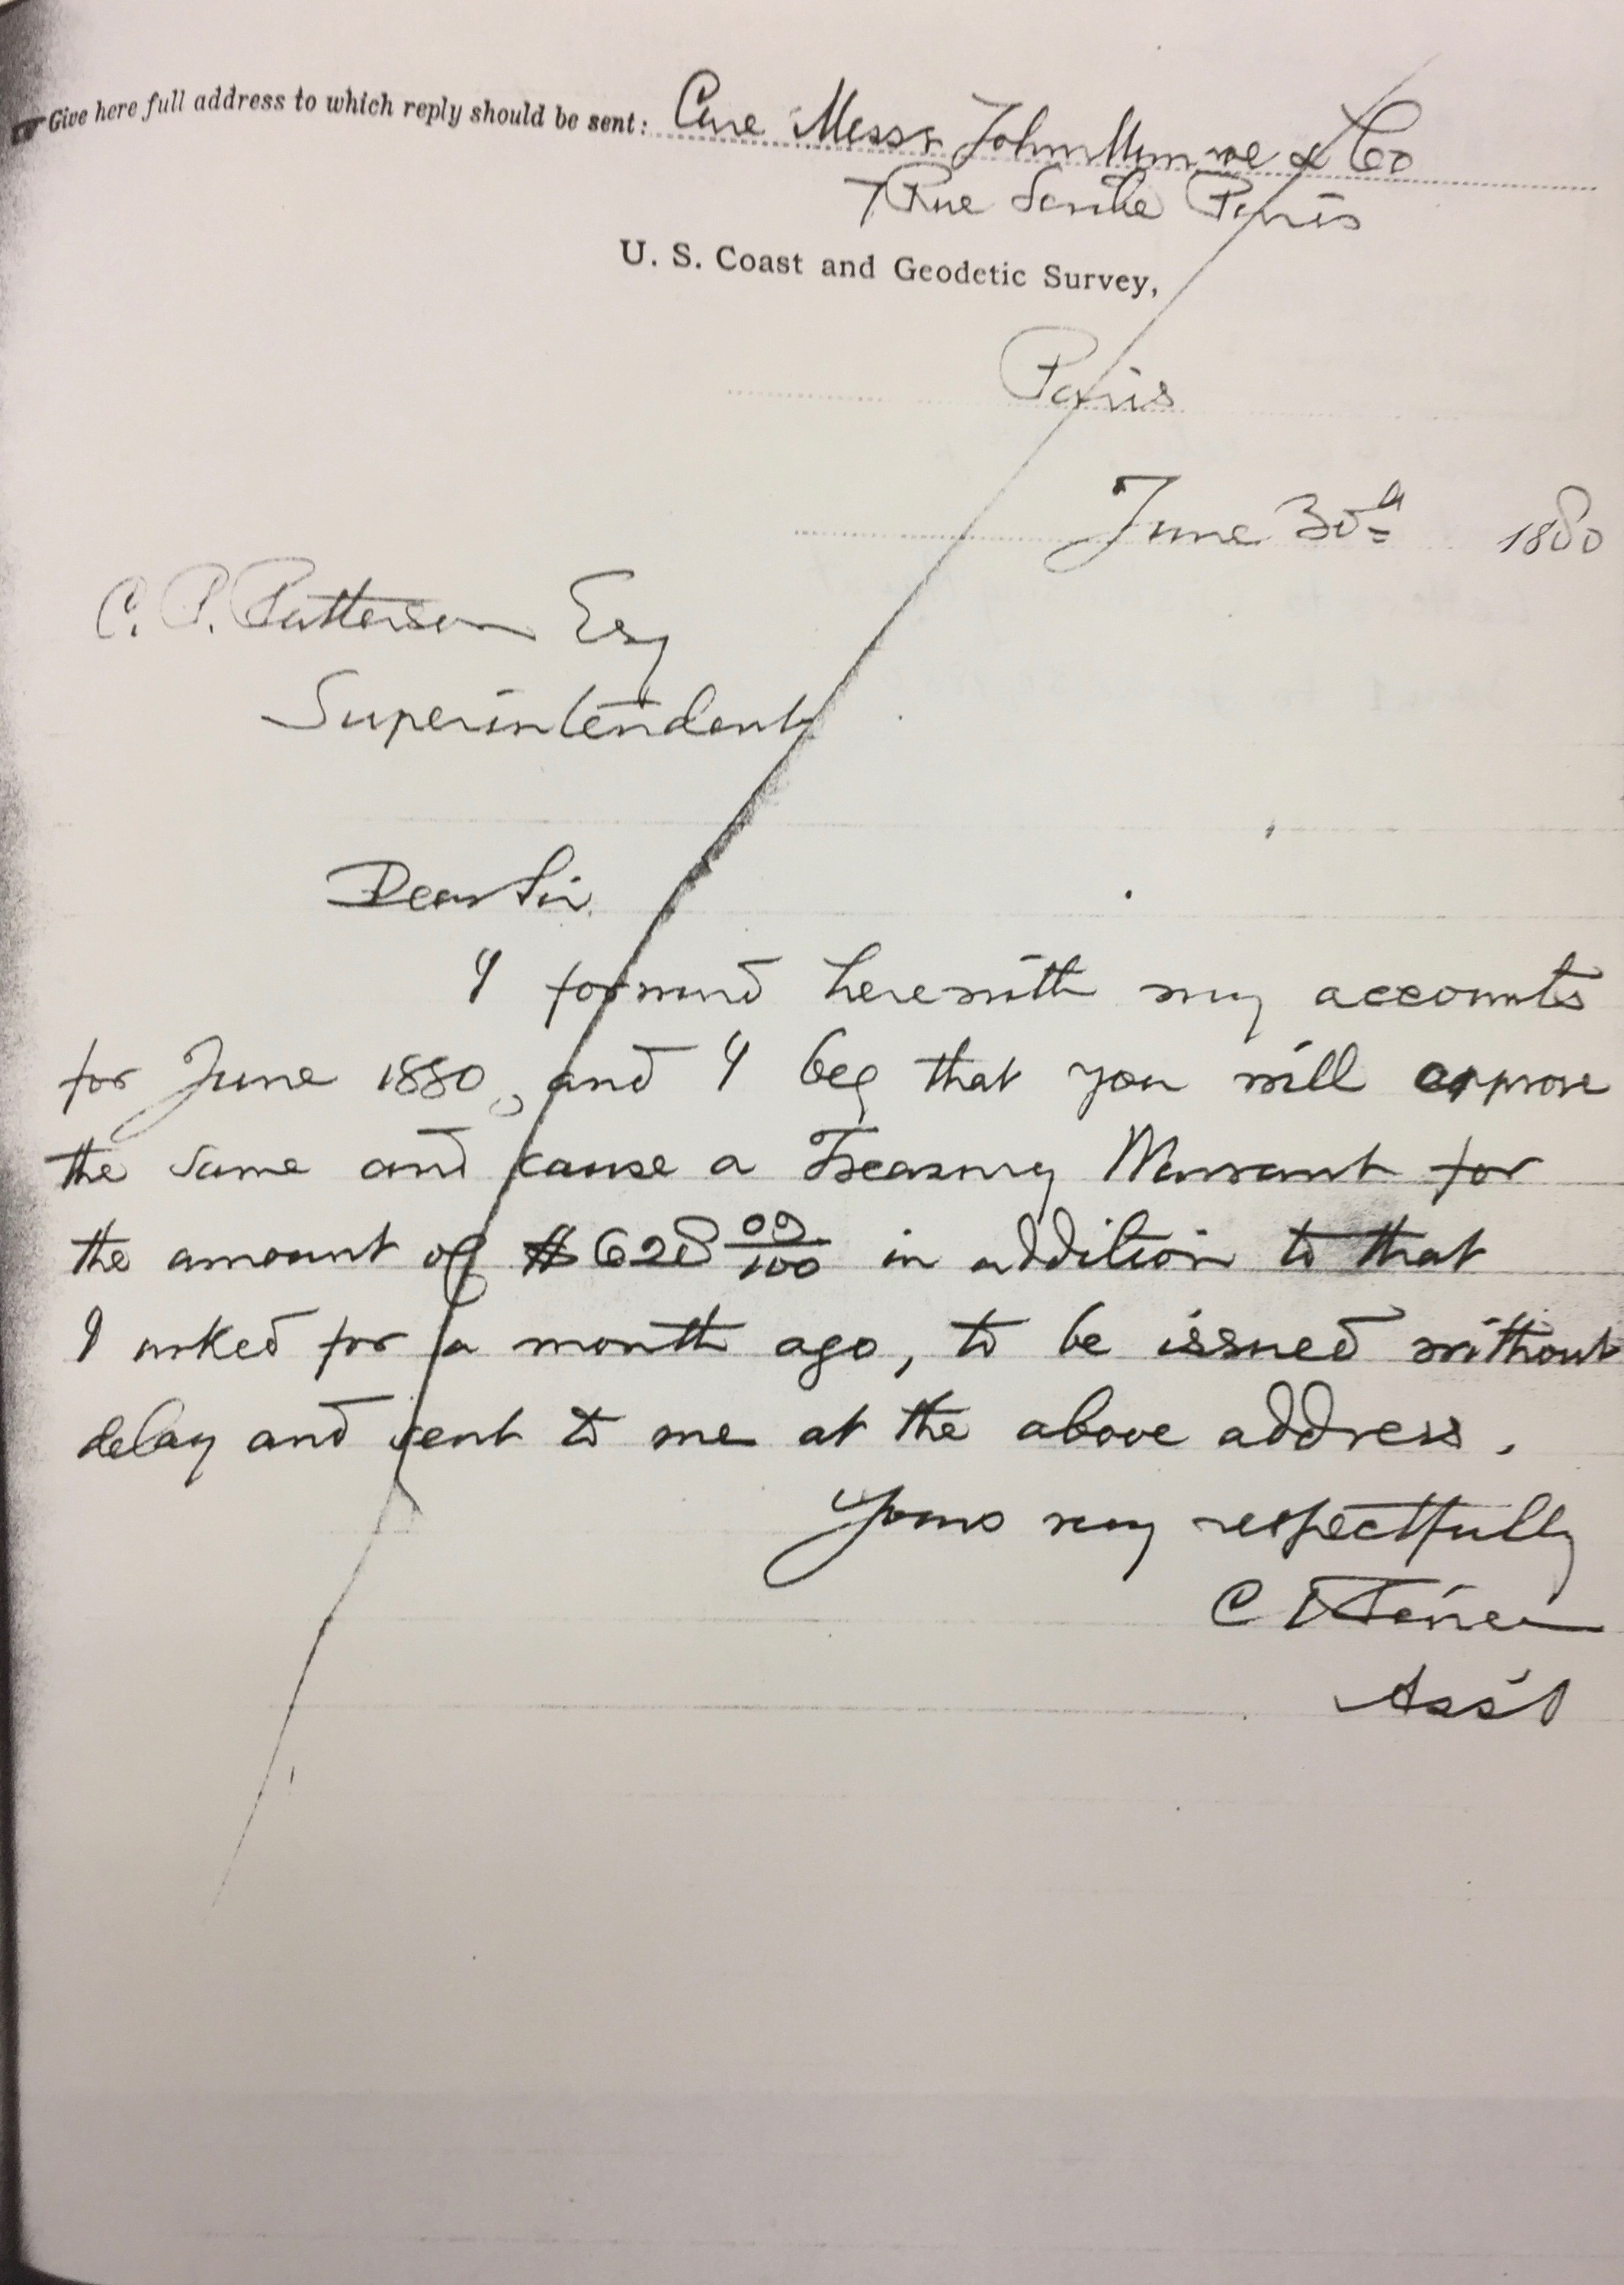 Give here full address to which reply should be sent: Care Messrs John Munroe & Co
7 Rue Scribe Paris
U. S. Coast and Geodetic Survey,
Paris
June 30th 1880
C. P. Patterson Esq
Superintendent
Dear Sir
I forward herewith my accounts
for June 1880, and I beg that you will approve
the same and cause a Treasury Warrant for
the amount of $628 09/100 in addition to that
I asked for a month ago, to be issued without
delay and sent to me at the above address.
Yours very respectfully
C S Peirce
Ass't